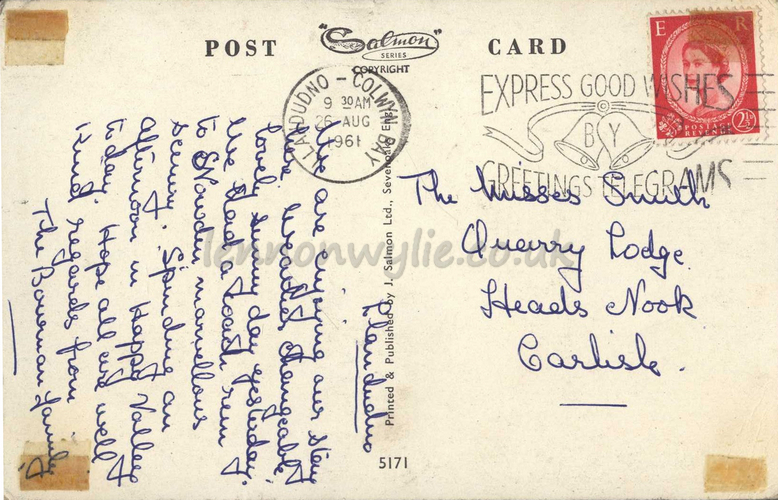 POST "Salmon" CARD
SERIES
COPYRIGHT
E R
POSTAGE
REVENUE
2½
LLANDUDNO - COLWYN BAY
9 30AM
26 AUG
1961
EXPRESS GOOD WISHES
BY
GREETINGS TELEGRAMS
The Misses Smith
Quarry Lodge
Heads Nook
Carlisle.
Llandudno
We are enjoying our stay
here. Weather changeable,
lovely sunny day yesterday.
We had a coach run
to Snowdon marvellous
scenery. Spending an
afternoon in Happy Valley
today. Hope all are well
Kind regards from
The Bowman family.
Printed & Published by J. Salmon Ltd., Sevenoaks, Eng.
5171
lennonwylie.co.uk